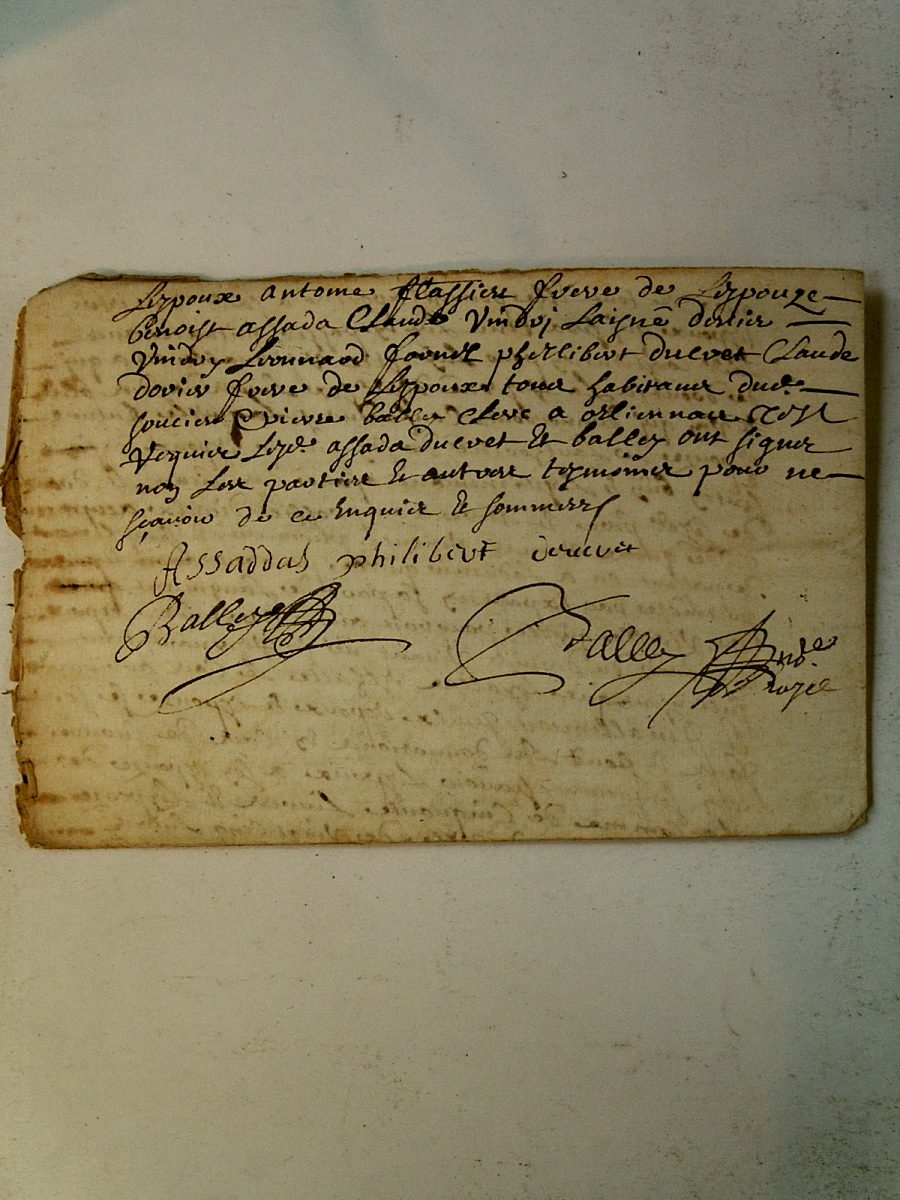 Lespoux antoine flassieu frere de Lespouze
benoist assada Claude Vindry Laisné denis
Vindry Leonnard philibert duevet Claude
frere de Lespoux tous habitans dud.
soucieu pierre balley clerc a orliennas tesm
Requis Lesd. assada duevet et balley ont signer
non Les parties et autres tesmoins pour ne
sçavoir de ce Enquis et sommers
Assaddas philibert deuevet
Balley
Balley Nore Royal